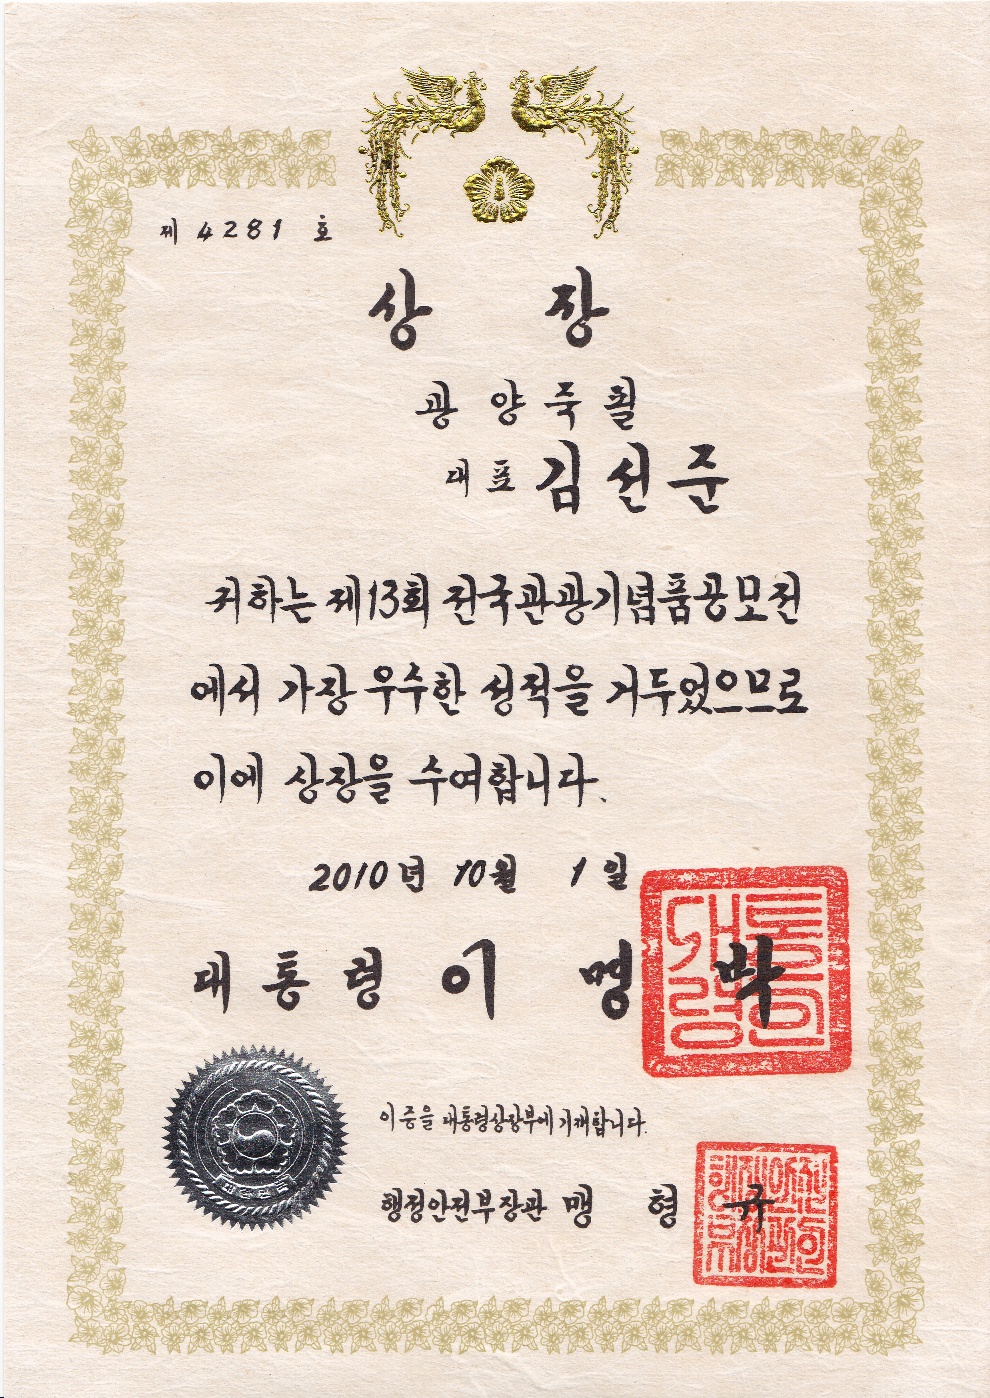 제 4281 호
상 장
광양죽필
대표 김선준
귀하는 제13회 전국관광기념품공모전
에서 가장 우수한 성적을 거두었으므로
이에 상장을 수여합니다.
2010년 10월 1일
대통령 이명박
대통령인
이 증을 대통령상장부에 기재합니다.
행정안전부장관 맹형규
대한민국